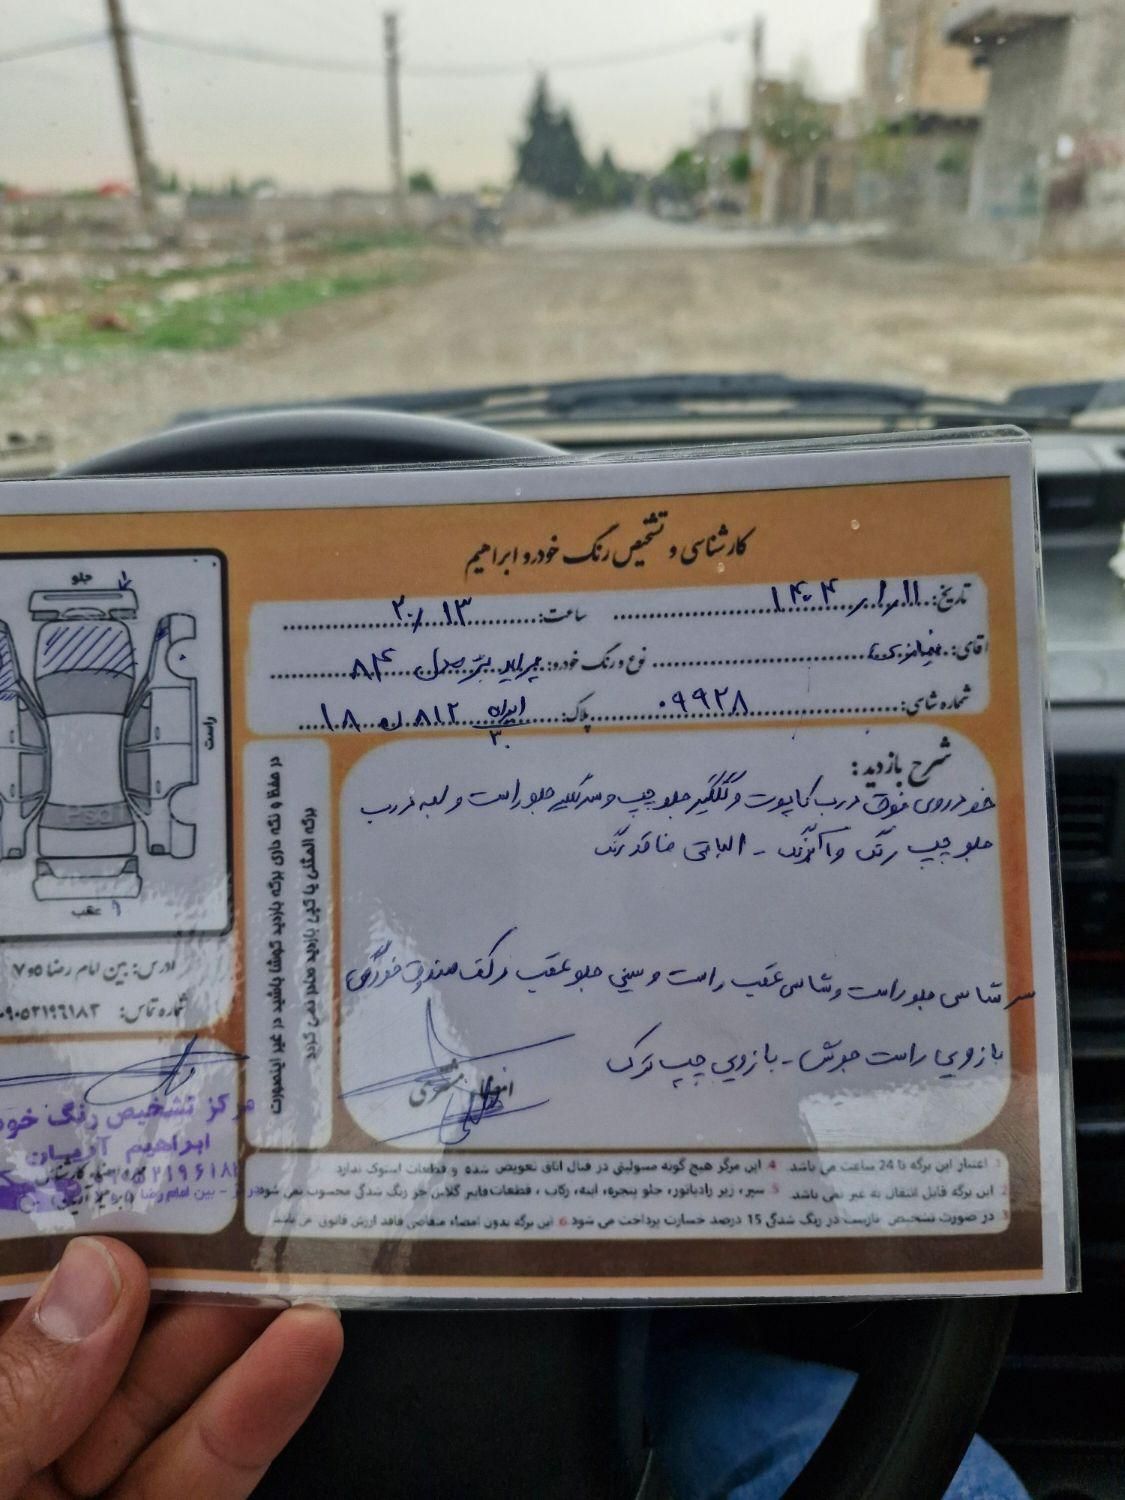 کارشناسی و تشخیص رنگ خودرو ابراهیم
تاریخ: ۱۴۰۴/۱/۱۱ ساعت: ۲۰/۱۳
آقای: نوع و رنگ خودرو: پراید مدل ۸۴
شماره شاسی: ۰۹۹۲۸ پلاک: ایران ۳۰ ۸۱۲ ۱۸
شرح بازدید:
خودروی فوق درب کاپوت و گلگیر جلو چپ و سرگلگیر جلو راست و لبه درب
جلو چپ رنگ و آثرنگ - الباقی فاقد رنگ
سرشاسی جلو راست و شاسی عقب راست و سینی جلو عقب و کف صندوق خوردگی
بازویی راست جوش - بازویی چپ ترک
امضاء مشتری
جلو
راست
عقب
آدرس: بین امام رضا ۵ و ۷
شماره تماس: ۰۹۰۵۲۱۹۶۱۸۳
در حفظ و نگه داری برگه بازدید کوشا باشید در غیر اینصورت
برگه المثنی یا کپی بازدید صادر نمی گردد
مرکز تشخیص رنگ خود
ابراهیم آریان
1 اعتبار این برگه تا 24 ساعت می باشد. 4 این مرکز هیچ گونه مسولیتی در قبال اتاق تعویض شده و قطعات استوک ندارد
2 این برگه قابل انتقال به غیر نمی باشد. 5 سپر، زیر رادیاتور، جلو پنجره، آینه، رکاب، قطعات فایبر گلاس جز رنگ شدگی محسوب نمی شود
3 در صورت تشخیص نادرست در رنگ شدگی 15 درصد خسارت پرداخت می شود 6 این برگه بدون امضاء متقاضی فاقد ارزش قانونی می باشد